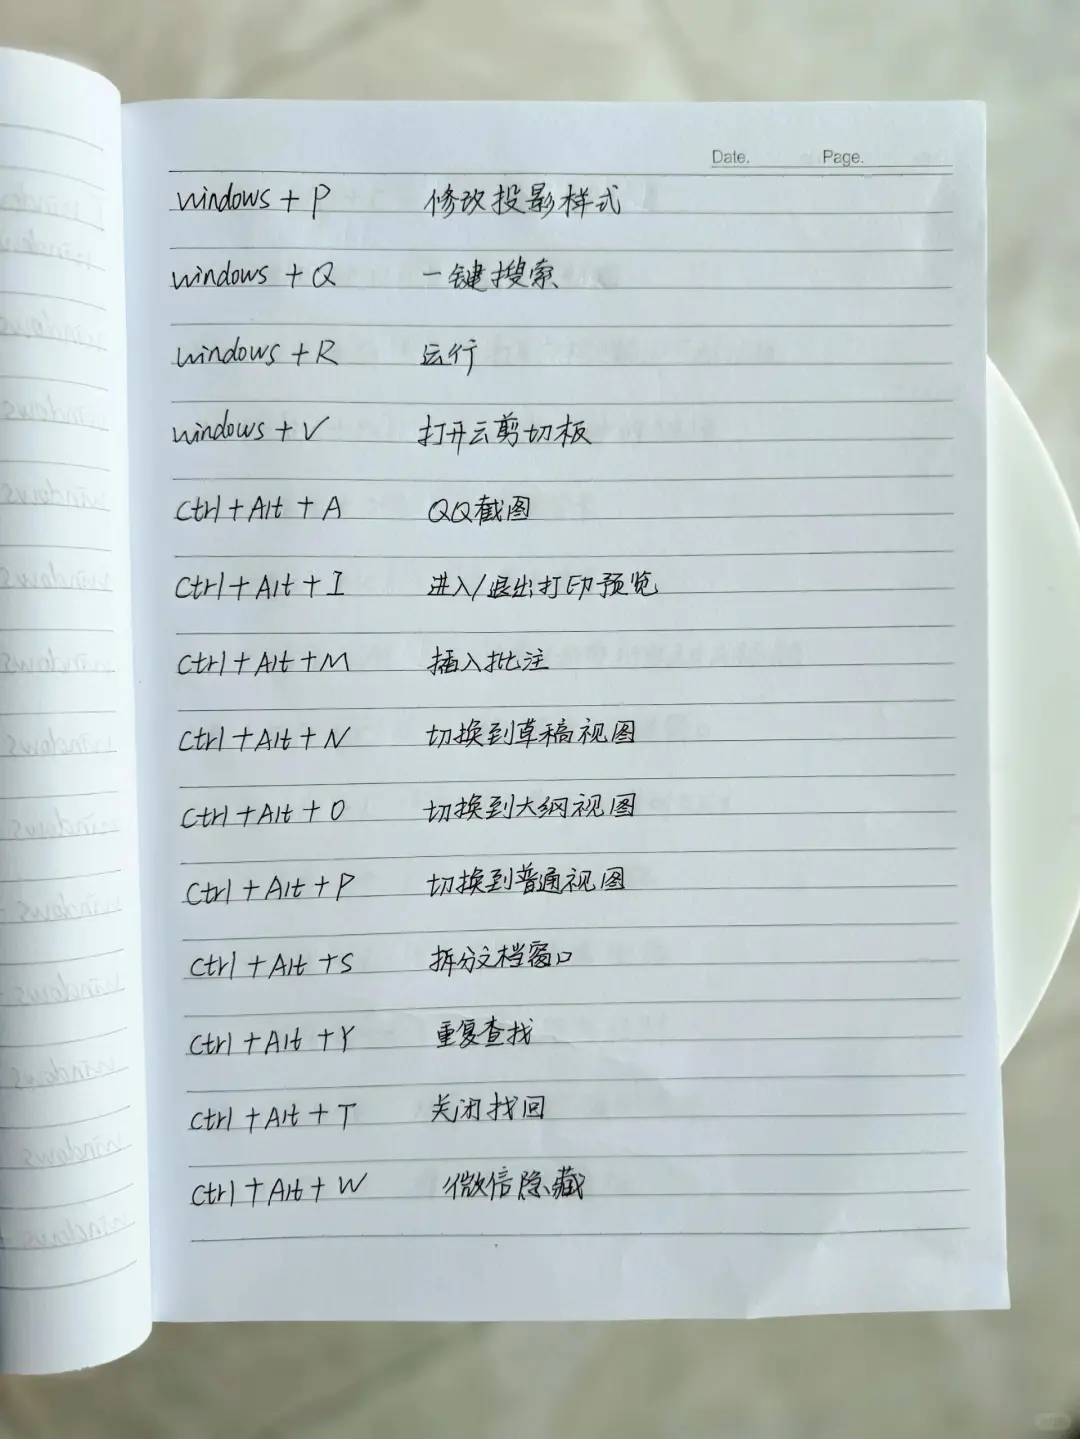 Date. Page.
windows + P 修改投影样式
windows + Q 一键搜索
windows + R 运行
windows + V 打开云剪切板
Ctrl + Alt + A QQ截图
Ctrl + Alt + I 进入/退出打印预览
Ctrl + Alt + M 插入批注
Ctrl + Alt + N 切换到草稿视图
Ctrl + Alt + O 切换到大纲视图
Ctrl + Alt + P 切换到普通视图
Ctrl + Alt + S 拆分文档窗口
Ctrl + Alt + Y 重复查找
Ctrl + Alt + T 关闭找回
Ctrl + Alt + W 微信隐藏